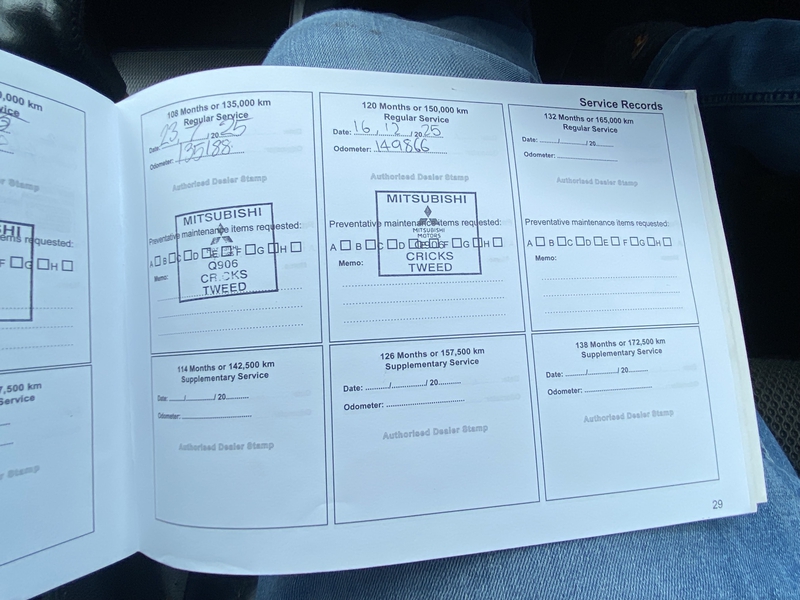 0,000 km
vice
er Stamp
SHI
ems requested:
F □ G □ H □
7,500 km
Service
er Stamp
Service Records
108 Months or 135,000 km
Regular Service
Date: 23 / 7 / 20 25
Odometer: 135188
Authorised Dealer Stamp
MITSUBISHI
Preventative maintenance items requested:
A □ B □ C □ D □ E □ F □ G □ H □
Q906
Memo:
CRICKS
TWEED
120 Months or 150,000 km
Regular Service
Date: 16 / 12 / 20 25
Odometer: 149866
Authorised Dealer Stamp
MITSUBISHI
Preventative maintenance items requested:
MITSUBISHI
MOTORS
A □ B □ C □ D □ E □ F □ G □ H □
Q906
Memo:
CRICKS
TWEED
132 Months or 165,000 km
Regular Service
Date: ....../....../ 20......
Odometer: ..........................
Authorised Dealer Stamp
Preventative maintenance items requested:
A □ B □ C □ D □ E □ F □ G □ H □
Memo:
114 Months or 142,500 km
Supplementary Service
Date: ....../............/ 20..........
Odometer: ..............................
Authorised Dealer Stamp
126 Months or 157,500 km
Supplementary Service
Date: ........../.............../ 20..........
Odometer: ...................................
Authorised Dealer Stamp
138 Months or 172,500 km
Supplementary Service
Date: ......../............../ 20.............
Odometer: ..................................
Authorised Dealer Stamp
29